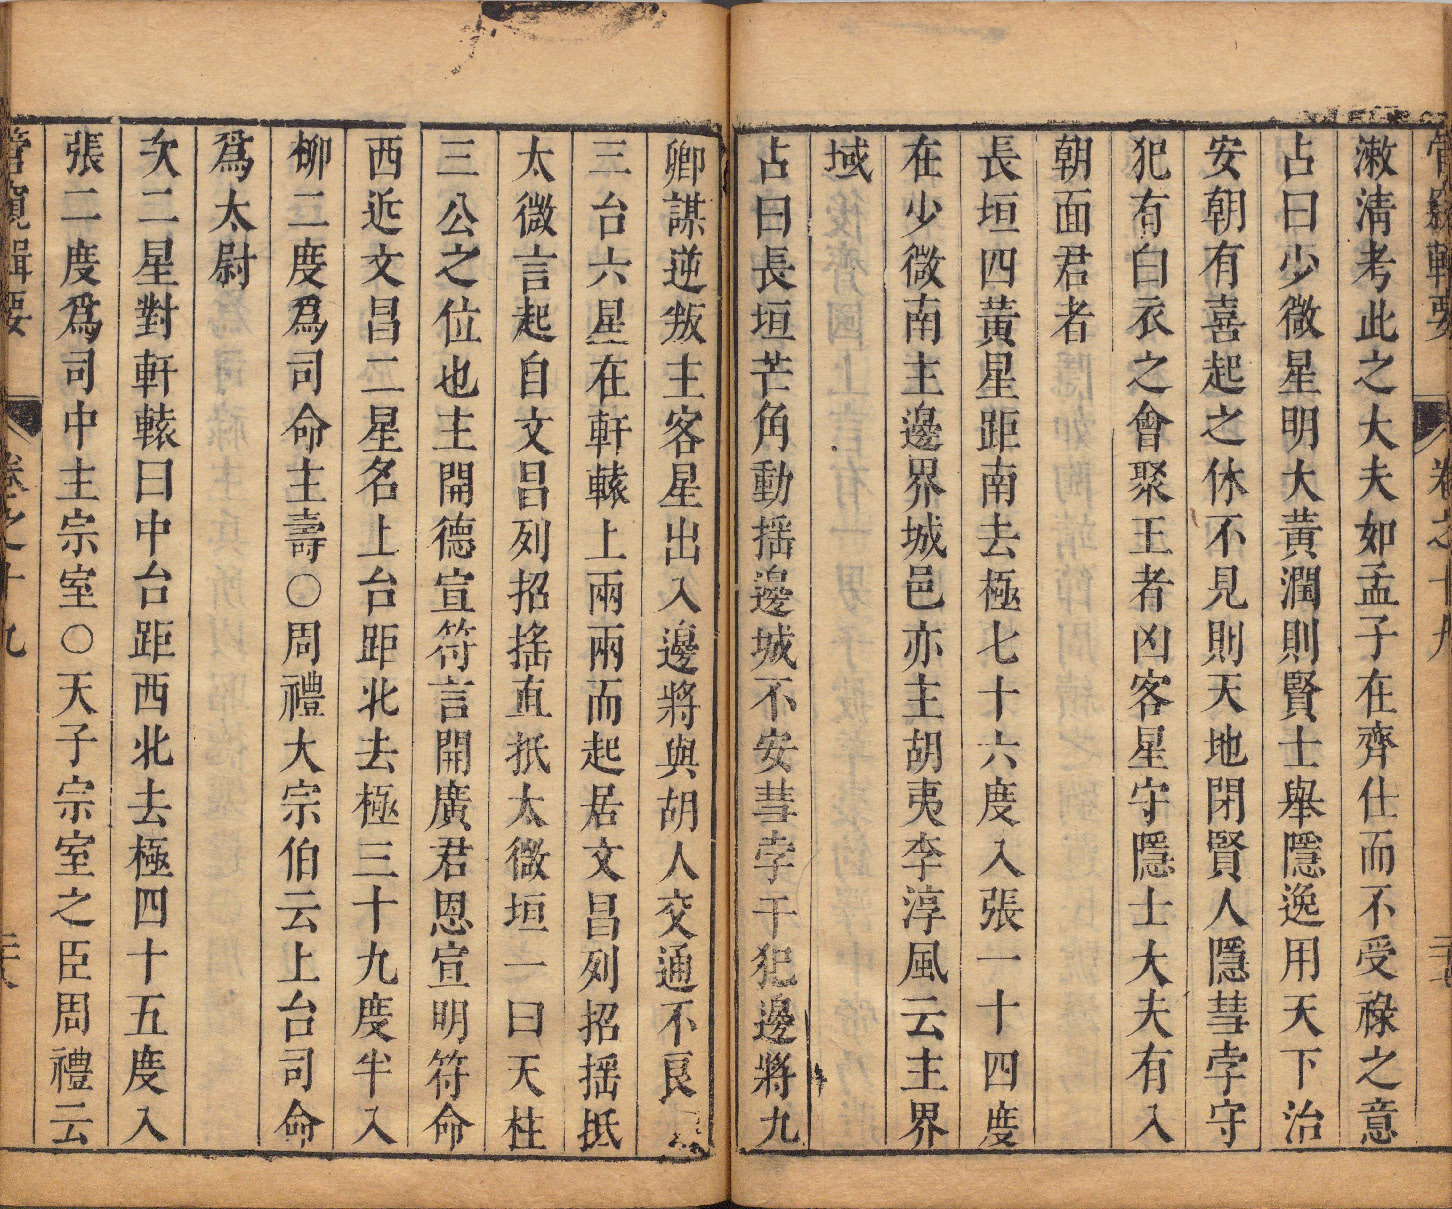 管窺輯要 卷之十九
漖清考此之大夫如孟子在齊仕而不受祿之意
占曰少微星明大黃潤則賢士舉隱逸用天下治
安朝有喜起之休不見則天地閉賢人隱彗孛守
犯有白衣之會聚王者凶客星守隱士大夫有入
朝面君者
長垣四黃星距南去極七十六度入張一十四度
在少微南主邊界城邑亦主胡夷李淳風云主界
域
占曰長垣芒角動揺邊城不安彗孛干犯邊將九
卿謀逆叛主客星出入邊將與胡人交通不良
三台六星在軒轅上兩兩而起居文昌列招揺抵
太微言起自文昌列招搖直抵太微垣一曰天柱
三公之位也主開德宣符言開廣君恩宣明符命
西近文昌二星名上台距北去極三十九度半入
柳二度爲司命主壽○周禮大宗伯云上台司命
爲太尉
次二星對軒轅曰中台距西北去極四十五度入
張二度爲司中主宗室○天子宗室之臣周禮云
管窺輯要 卷之十九